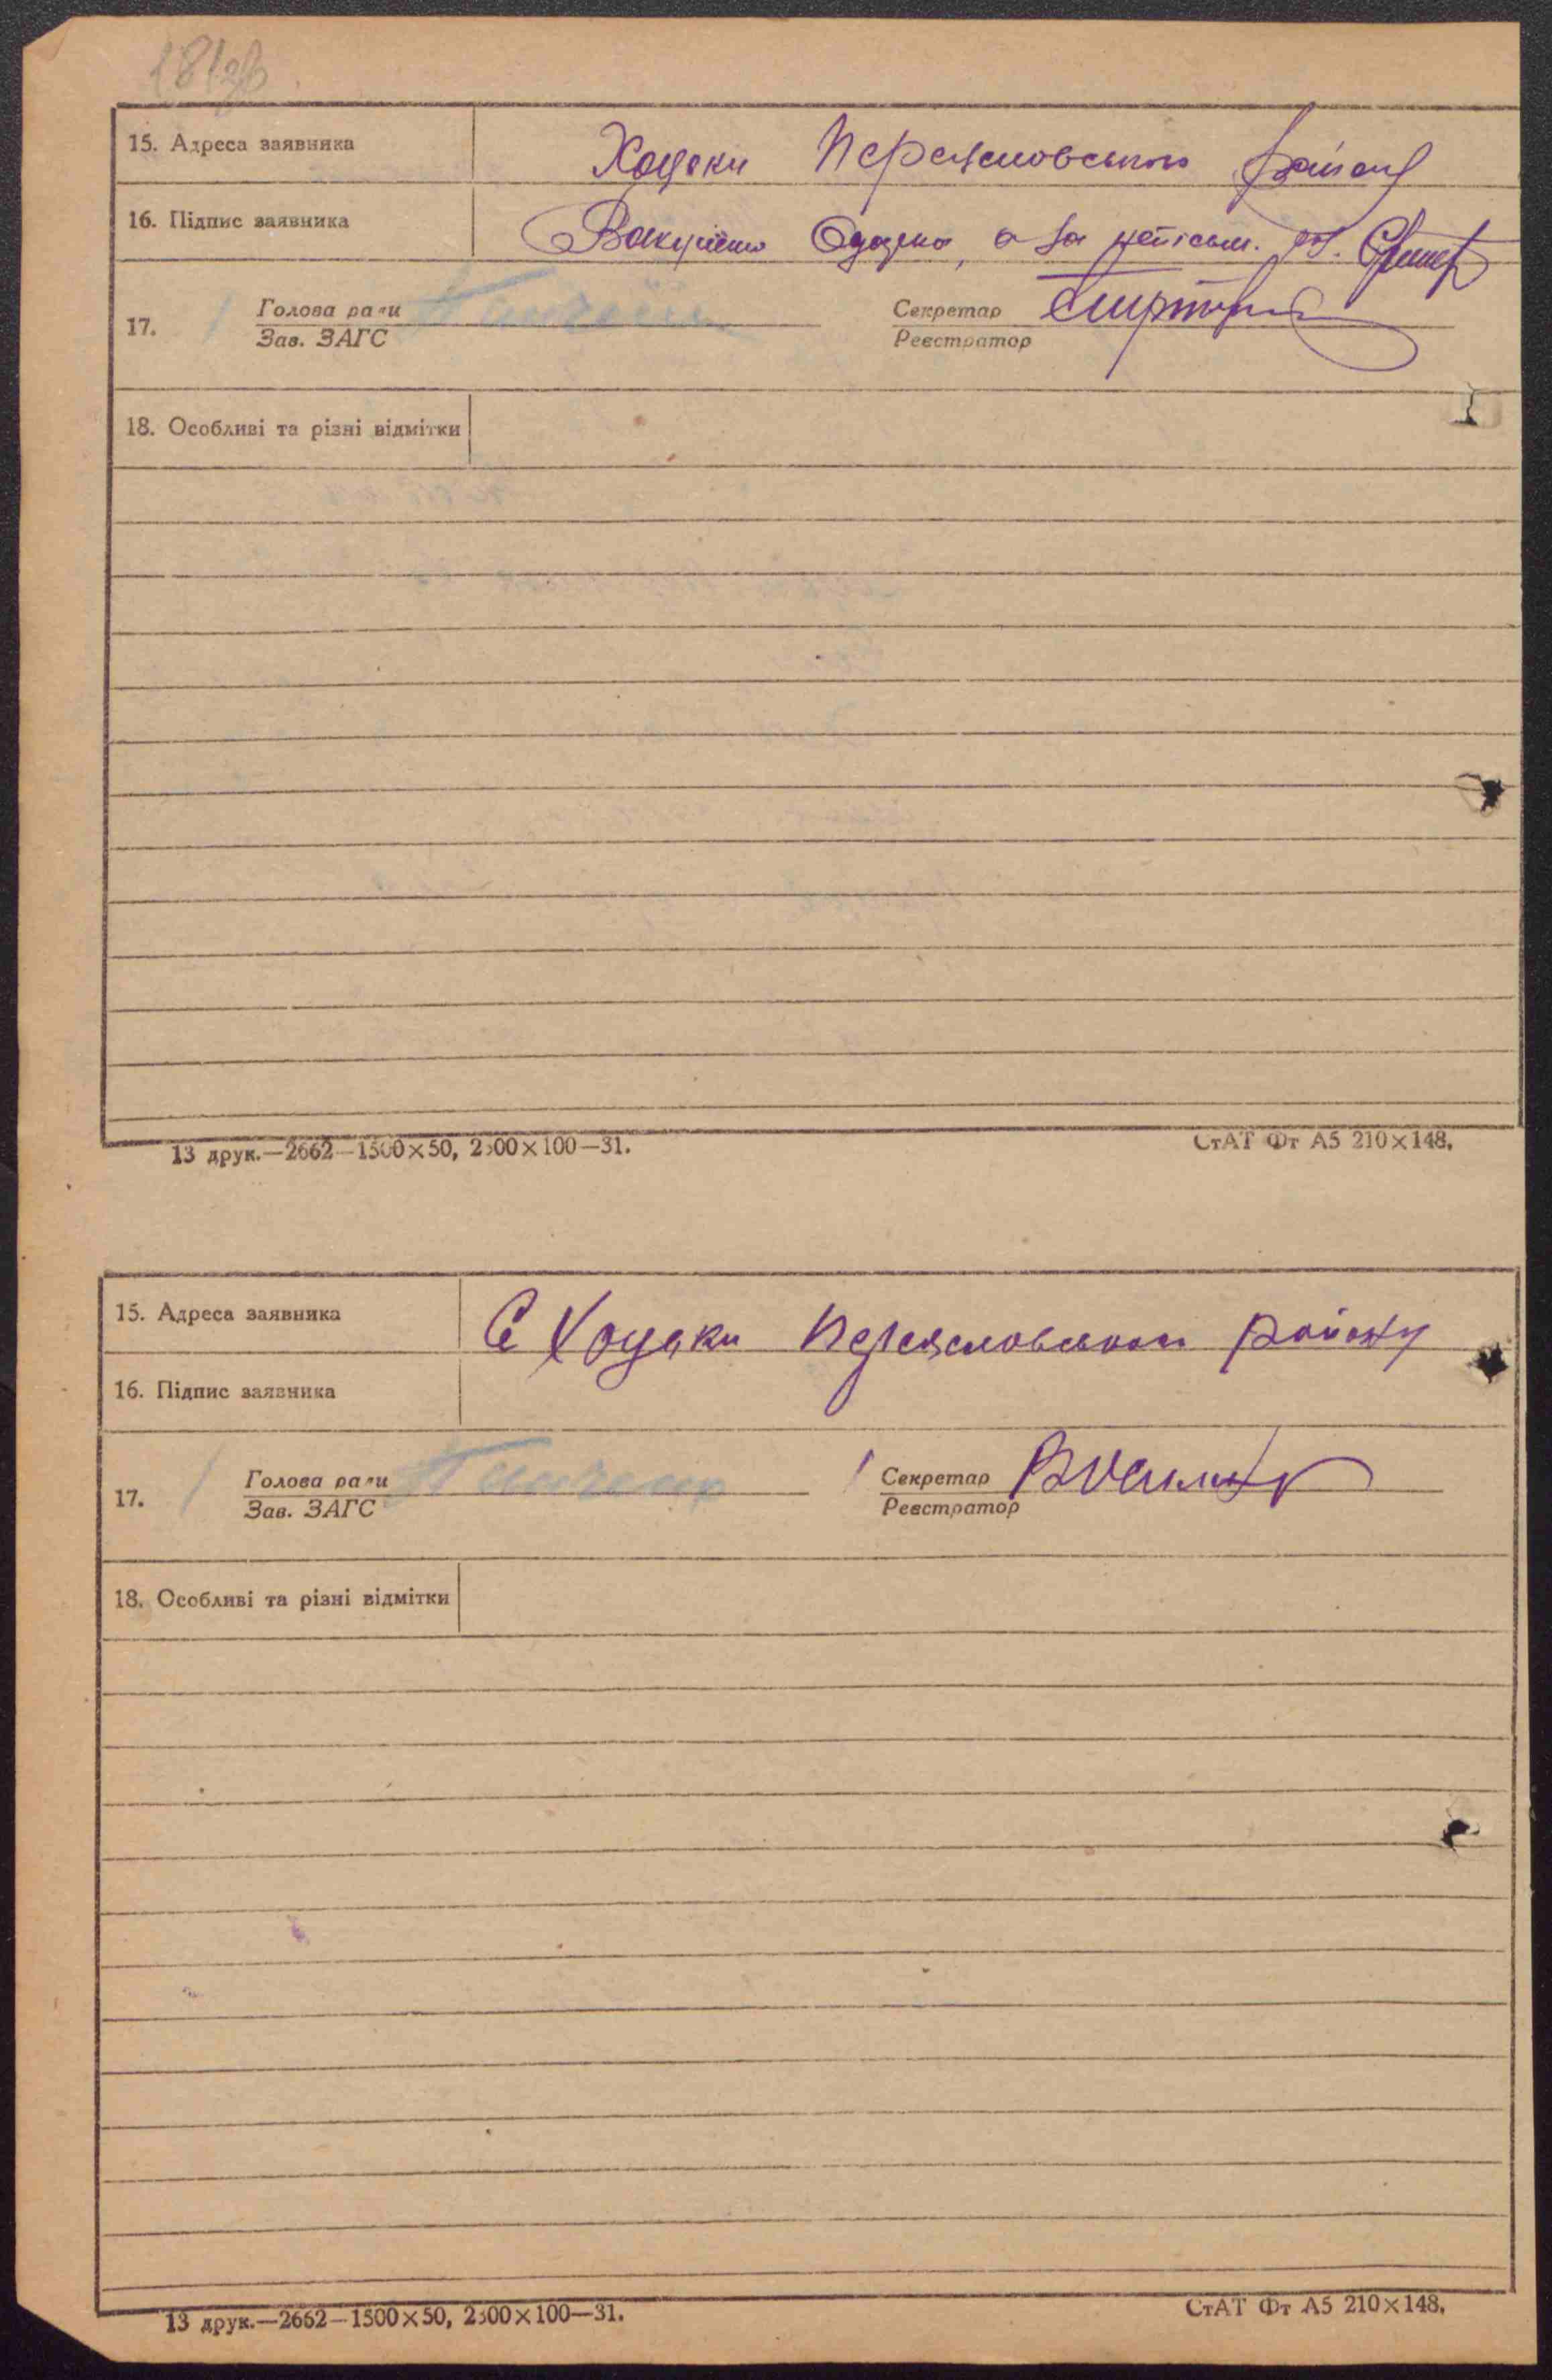 15. Адреса заявника Хоцьки Переяславського району
16. Підпис заявника Одарка, а за неписьм.
17. Голова ради Секретар
Зав. ЗАГС Реєстратор
18. Особливі та різні відмітки
13 друк.—2662—1500×50, 2500×100—31. СтАТ Фт А5 210×148.
15. Адреса заявника С Хоцьки Переяславського району
16. Підпис заявника
17. Голова ради Секретар
Зав. ЗАГС Реєстратор
18. Особливі та різні відмітки
13 друк.—2662—1500×50, 2500×100—31. СтАТ Фт А5 210×148.